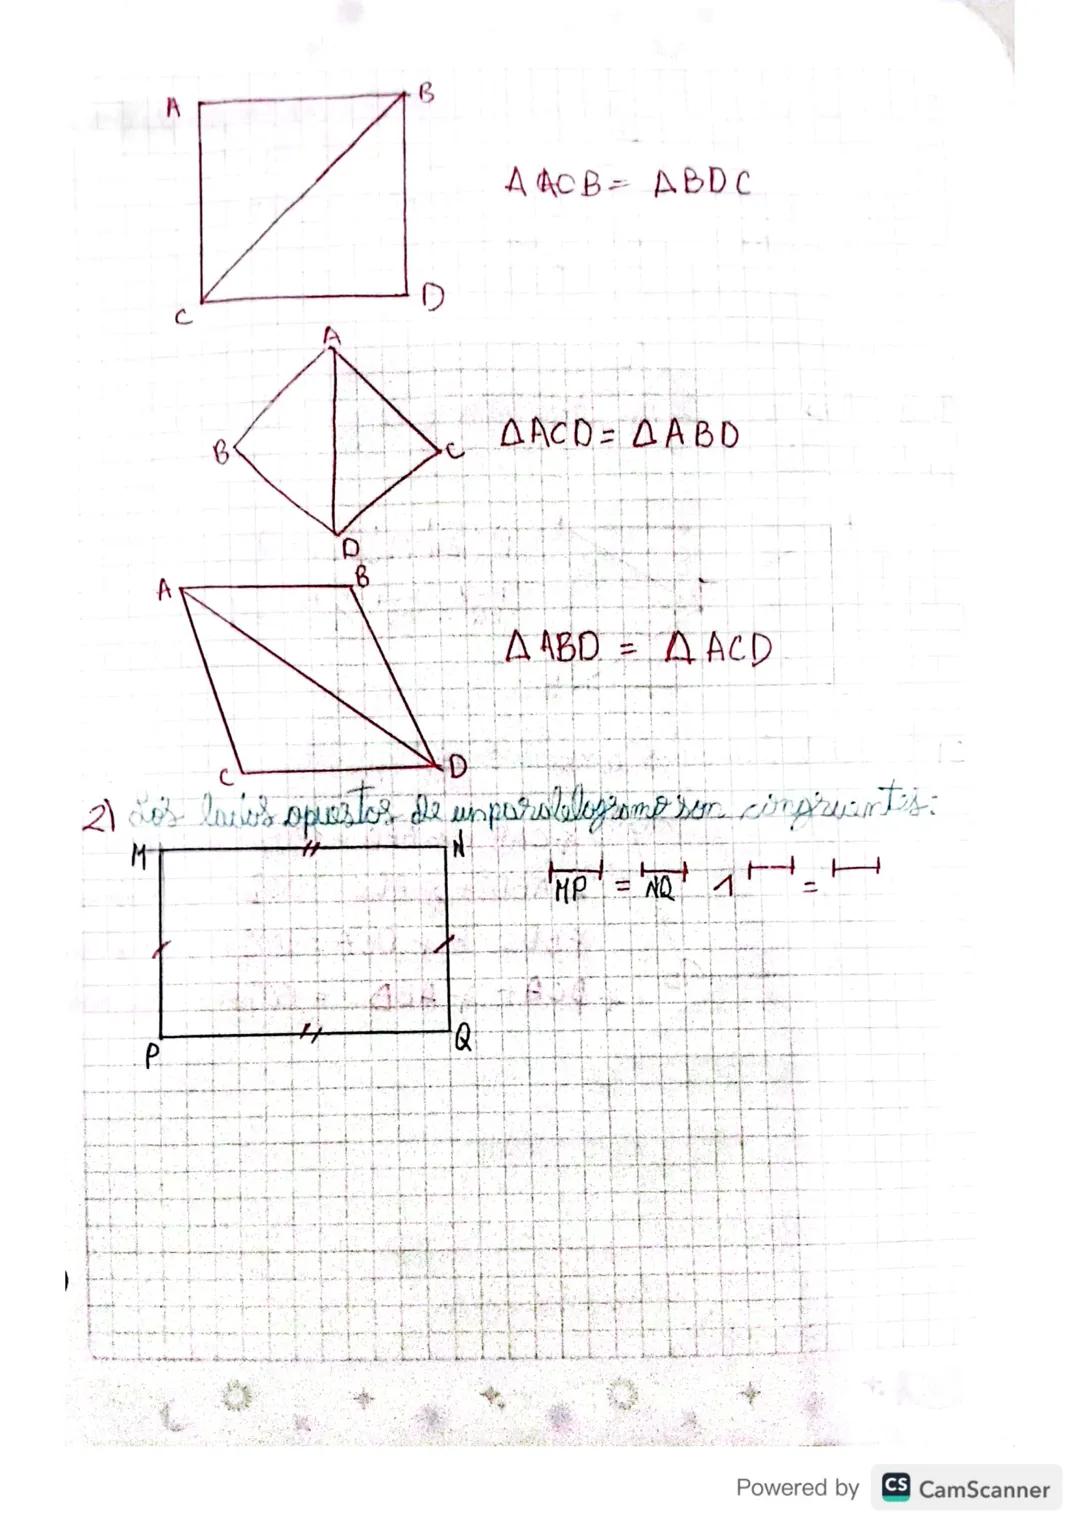 A
B
Δ ACB = Δ BDC
C
D
A
B
C
Δ ACD = Δ ABD
D
A
B
Δ ABD = Δ ACD
C
D
2) Los lados opuestos de un paralelogramo son congruentes:
M
N
MP = NQ 1 =
P
Q
Powered by CS CamScanner